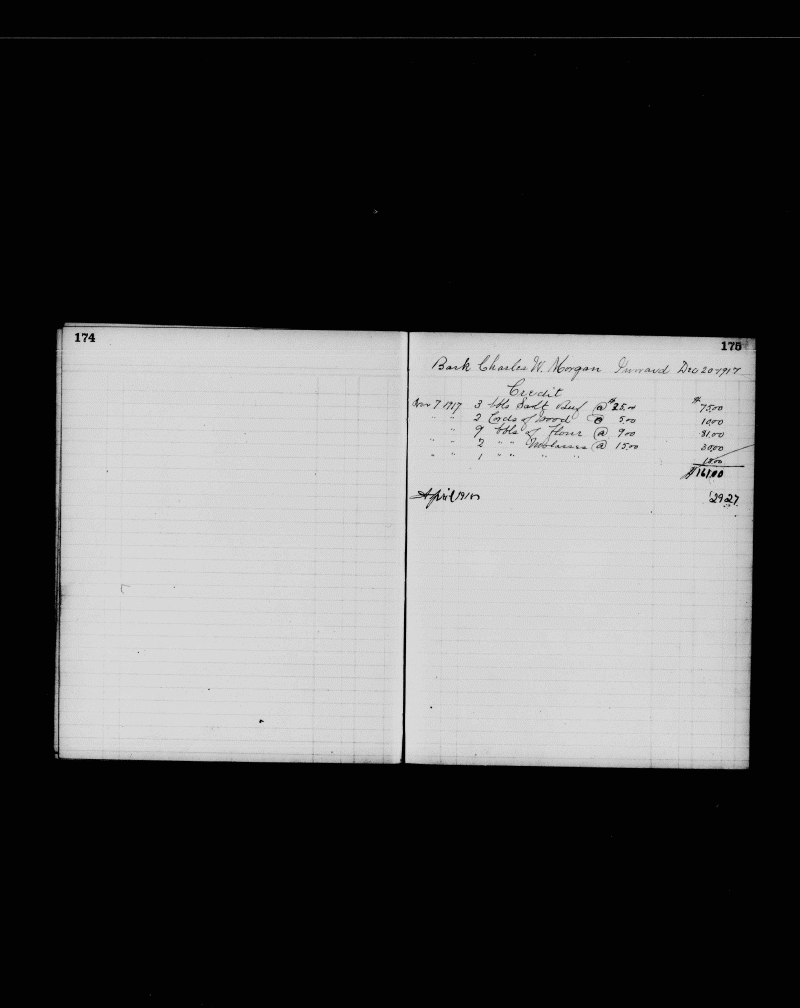 174
175
Bark Charles W. Morgan Inward Dec 20-1917
Credit
Nov 7 1917 3 bbls Salt Beef @ $25.00 $ 75.00
" " 2 Cords of Wood @ 5.00 10.00
" " 9 bbls of Flour @ 9.00 81.00
" " 2 " " Molasses @ 15.00 30.00
" " 1 " " " " 15.00
$161.00
April 2927